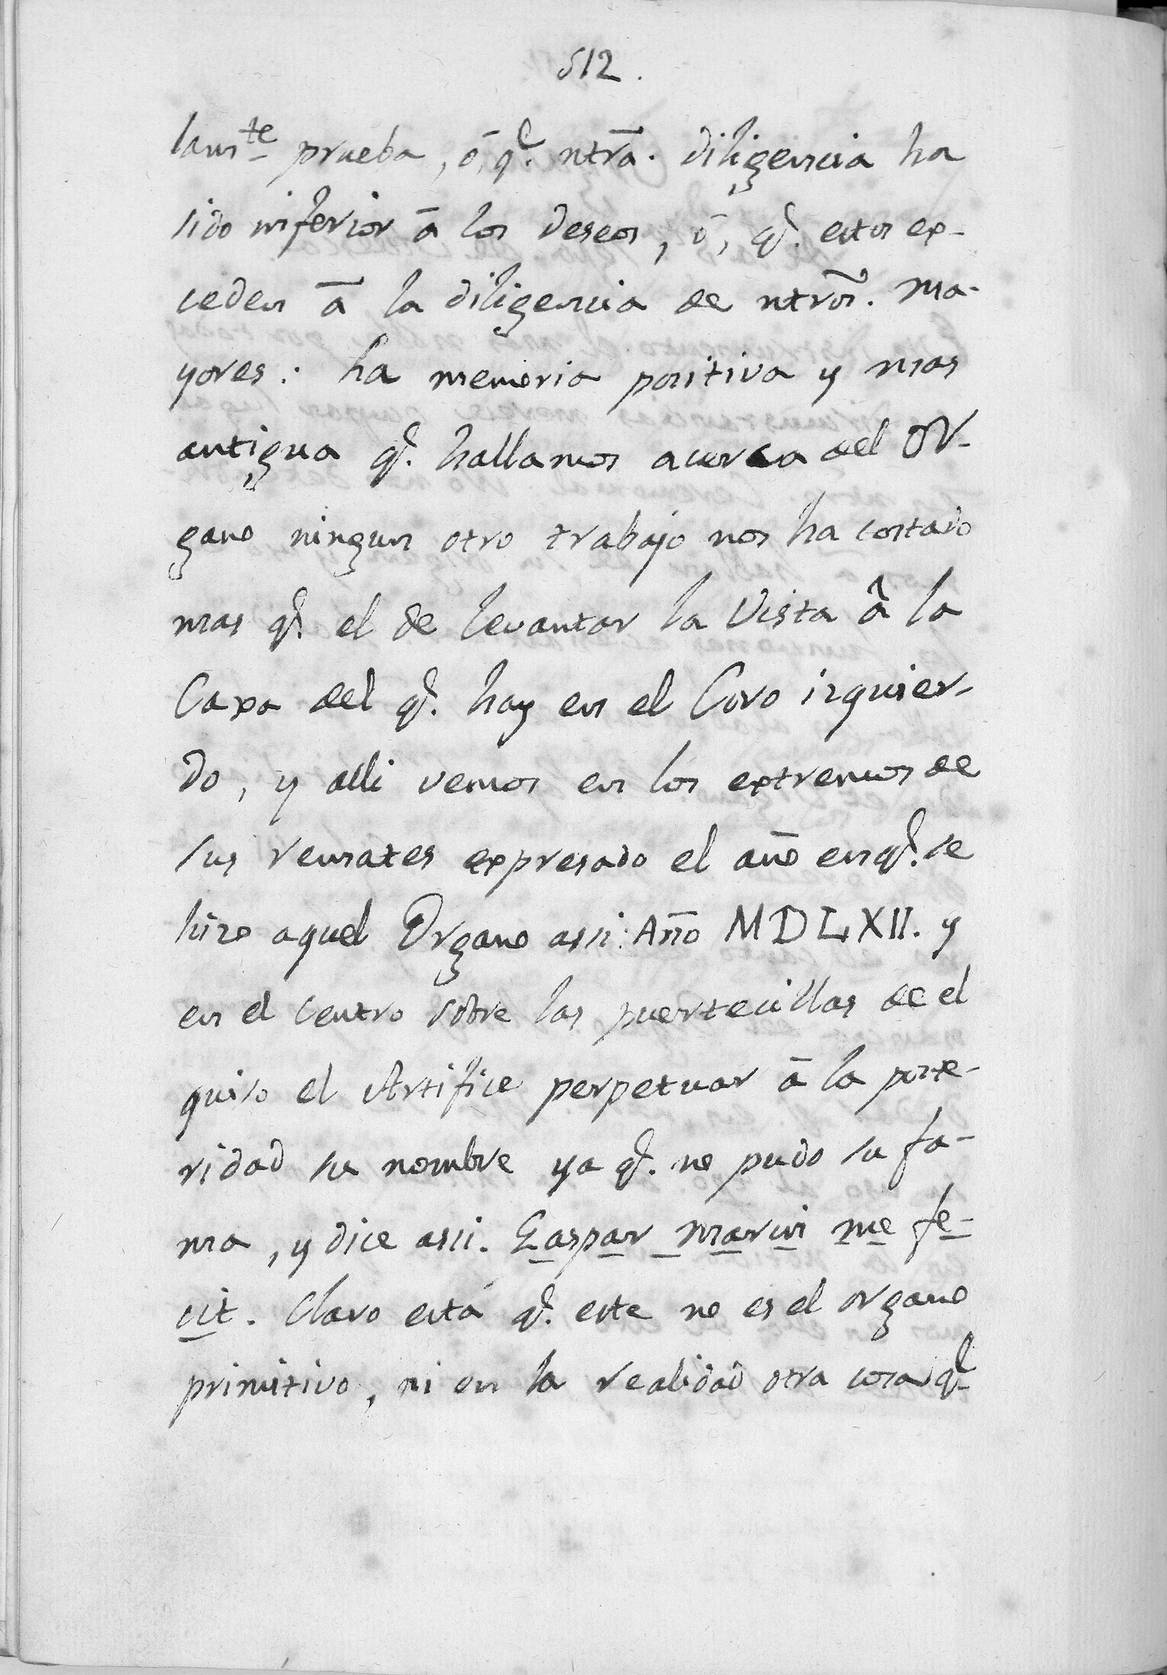 512.
lam.te prueba, ó, q.e ntra. diligencia ha
sido inferior á los deseos, ó, q.e estos ex-
ceden á la diligencia de ntros. Ma-
yores: ha memoria positiva y mas
antigua q.e hallamos acerca del Or-
gano ningun otro trabajo nos ha costado
mas q.e el de levantar la Vista â la
Caxa del q.e hay en el Coro izquier-
do, y alli vemos en los extremos de
sus remates expresado el año en q.e se
hizo aquel Organo assi: Año MDLXII. y
en el centro sobre las puertecillas de el
quiso el Artifice perpetuar á la poste-
ridad su nombre ya q.e no pudo su fa-
ma, y dice assi. Gaspar Marin me fe-
cit. Claro está q.e este no es el organo
primitivo, ni en la realidad otra cosa q.e